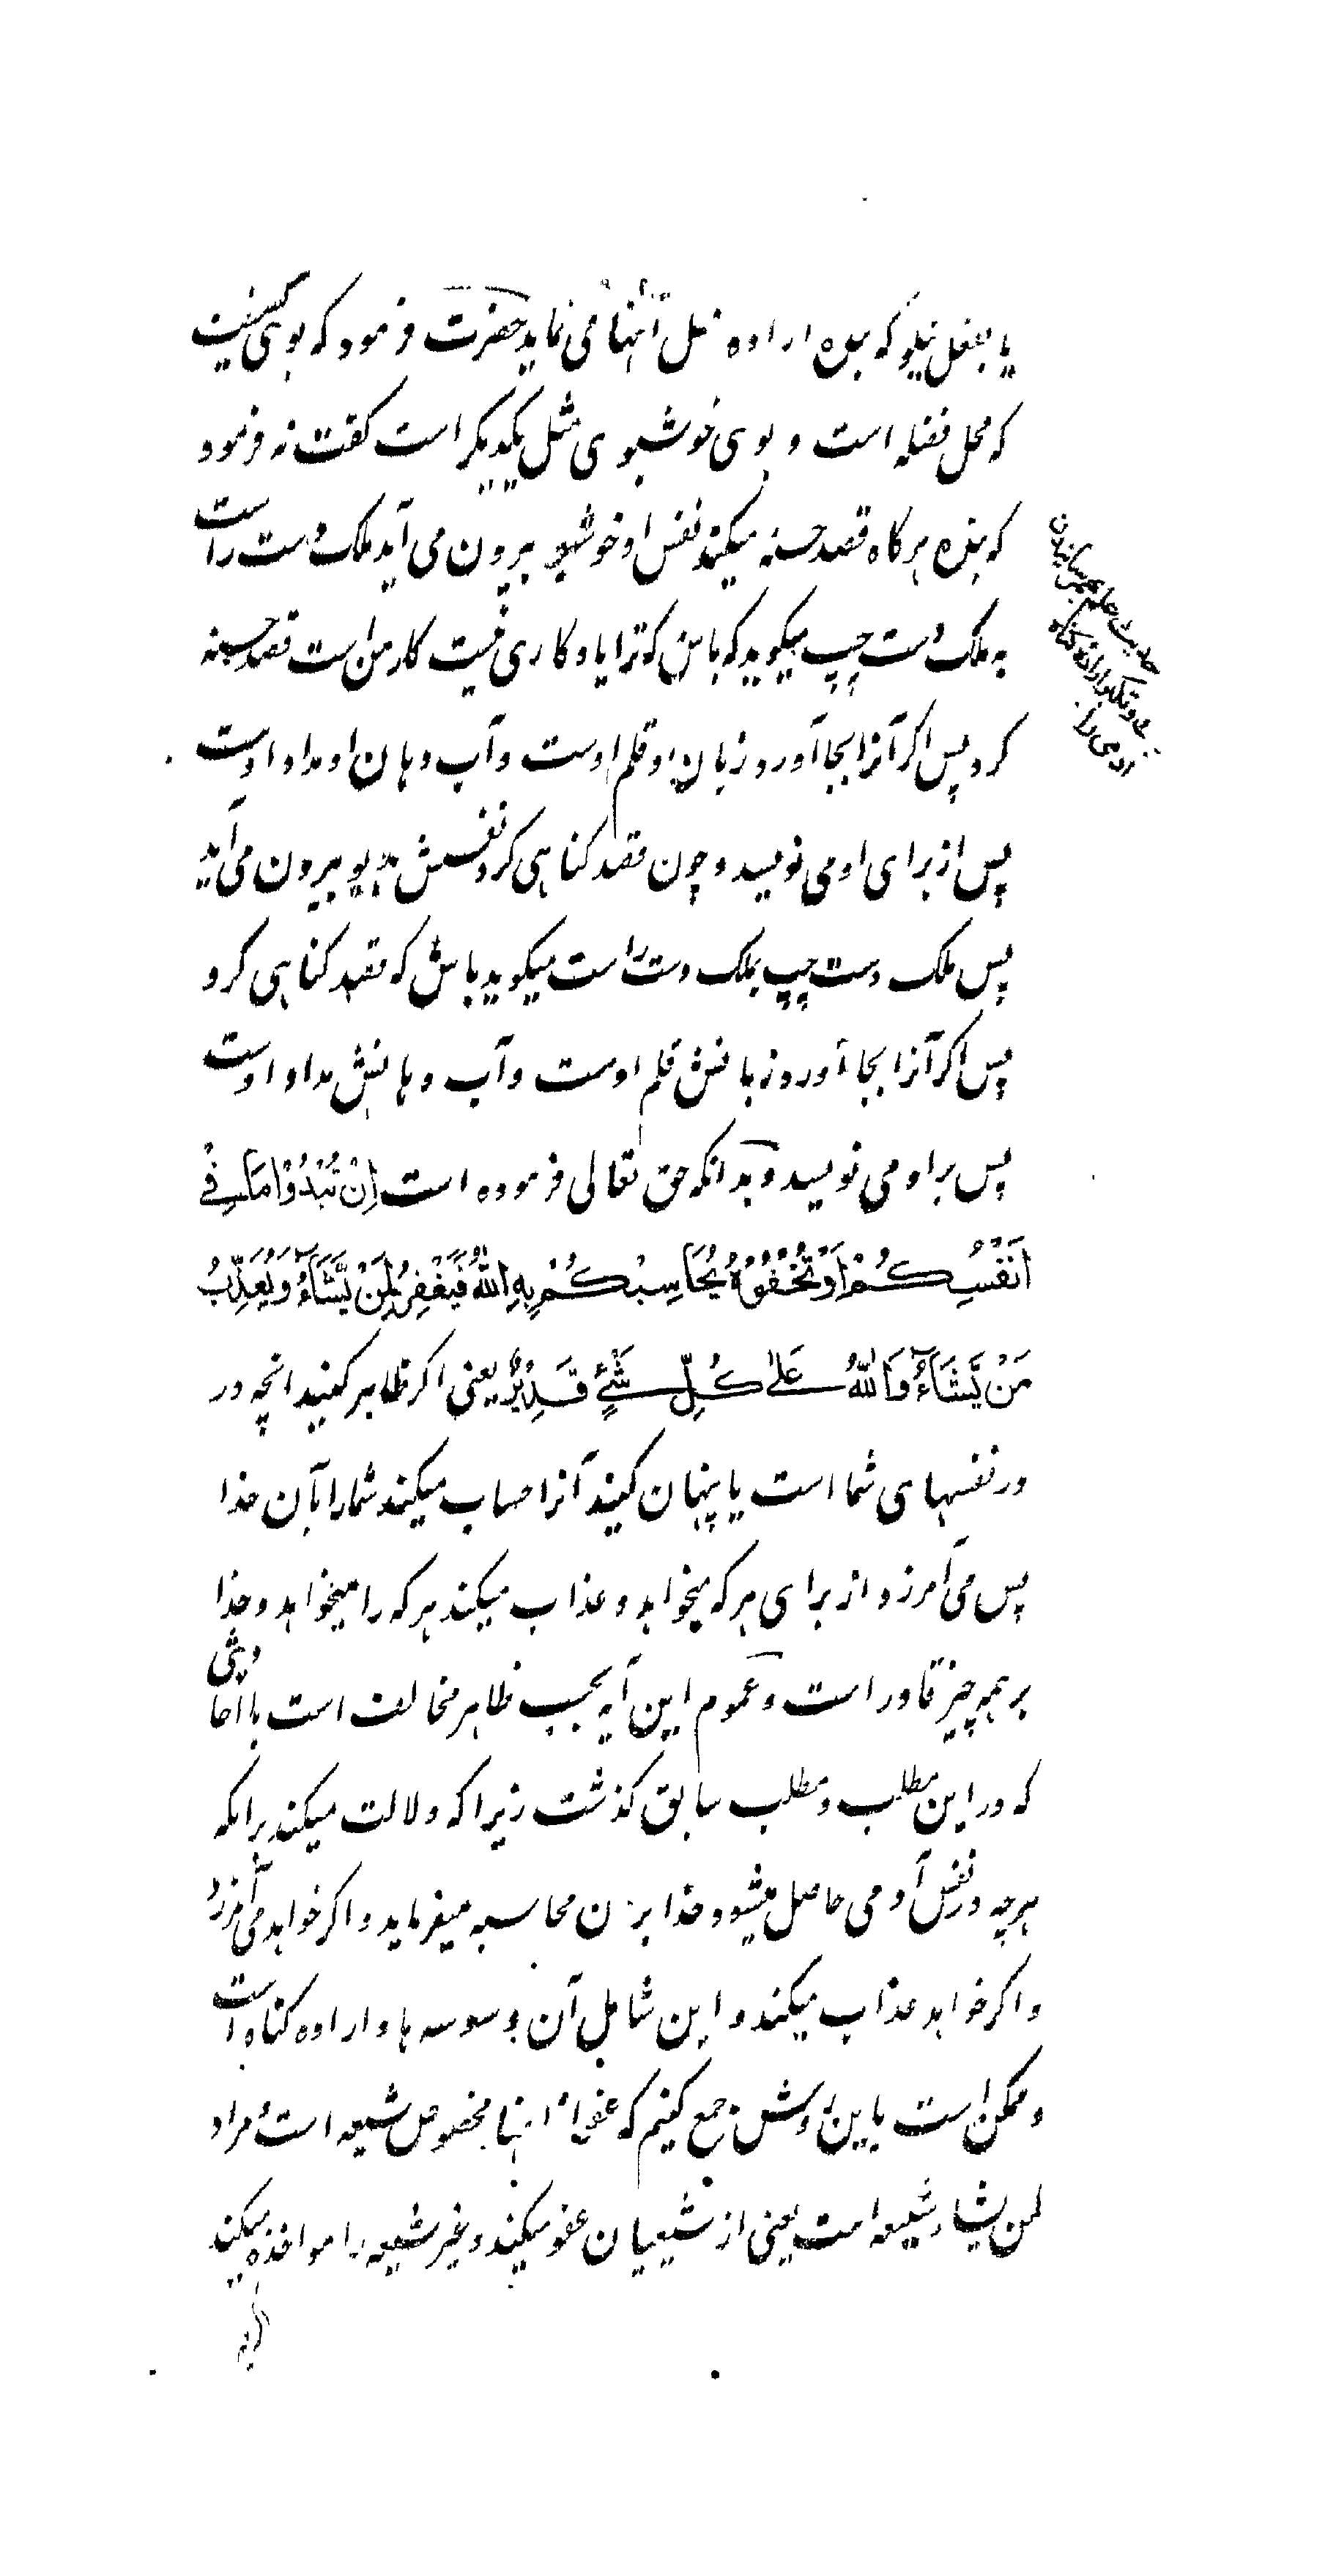 یا بفعل نیکو که بنده اراده فعل آنها می نماید حضرت فرمود که بوی کنیف
که محل فضله است و بوی خوشبوی مثل یکدیگر است کفت نه فرمود
که بنده هرکاه قصد حسنه میکند نفس او خوشبو بیرون می آید ملک دست راست
به ملک دست چپ میکوید که باش که ترا با او کاری نیست کار من است قصد حسنه
کرد پس اگر آنرا بجا آورد زبان او قلم اوست و آب دهان او مداد اوست
پس از برای او می نویسد و چون قصد کناهی کرد نفسش بدبو بیرون می آید
پس ملک دست چپ بملک دست راست میکوید باش که قصد کناهی کرد
پس اکر آنرا بجا آورد زبانش قلم اوست و آب دهانش مداد اوست
پس بر او می نویسد و بدانکه حق تعالی فرموده است اِنْ تُبْدُوْا مَا فِیْ
اَنْفُسِكُمْ اَوْ تُخْفُوْهُ یُحَاسِبْكُمْ بِهِ اللّٰهُ فَیَغْفِرُ لِمَنْ یَّشَآءُ وَیُعَذِّبُ
مَنْ یَّشَآءُ وَاللّٰهُ عَلٰی كُلِّ شَیْءٍ قَدِیْرٌ یعنی اکر ظاهر کنید انچه در
در نفسهای شما است یا پنهان کنید آنرا حساب میکند شما را بآن خدا
پس می آمرزد از برای هر که میخواهد و عذاب میکند هر که را میخواهد و خدا
بر همه چیز قادر است و عموم این آیه بحسب ظاهر مخالف است با احادیثی
که در این مطلب و مطلب سابق کذشت زیرا که دلالت میکند برانکه
هرچه در نفس آدمی حاصل میشود و خدا بر آن محاسبه میفرماید و اکر خواهد می آمرزد
و اکر خواهد عذاب میکند و این شامل آن وسوسه ها و اراده کناه است
و ممکن است باین روش جمع کنیم که عفو از اینها مخصوص شیعه است مراد
لمن یشاء شیعه است یعنی از شیعیان عفو میکند و غیر شیعه را مواخذه میکند
حدیث علم بهم رسانیدن
ملک بر اراده کناه
آدمی را